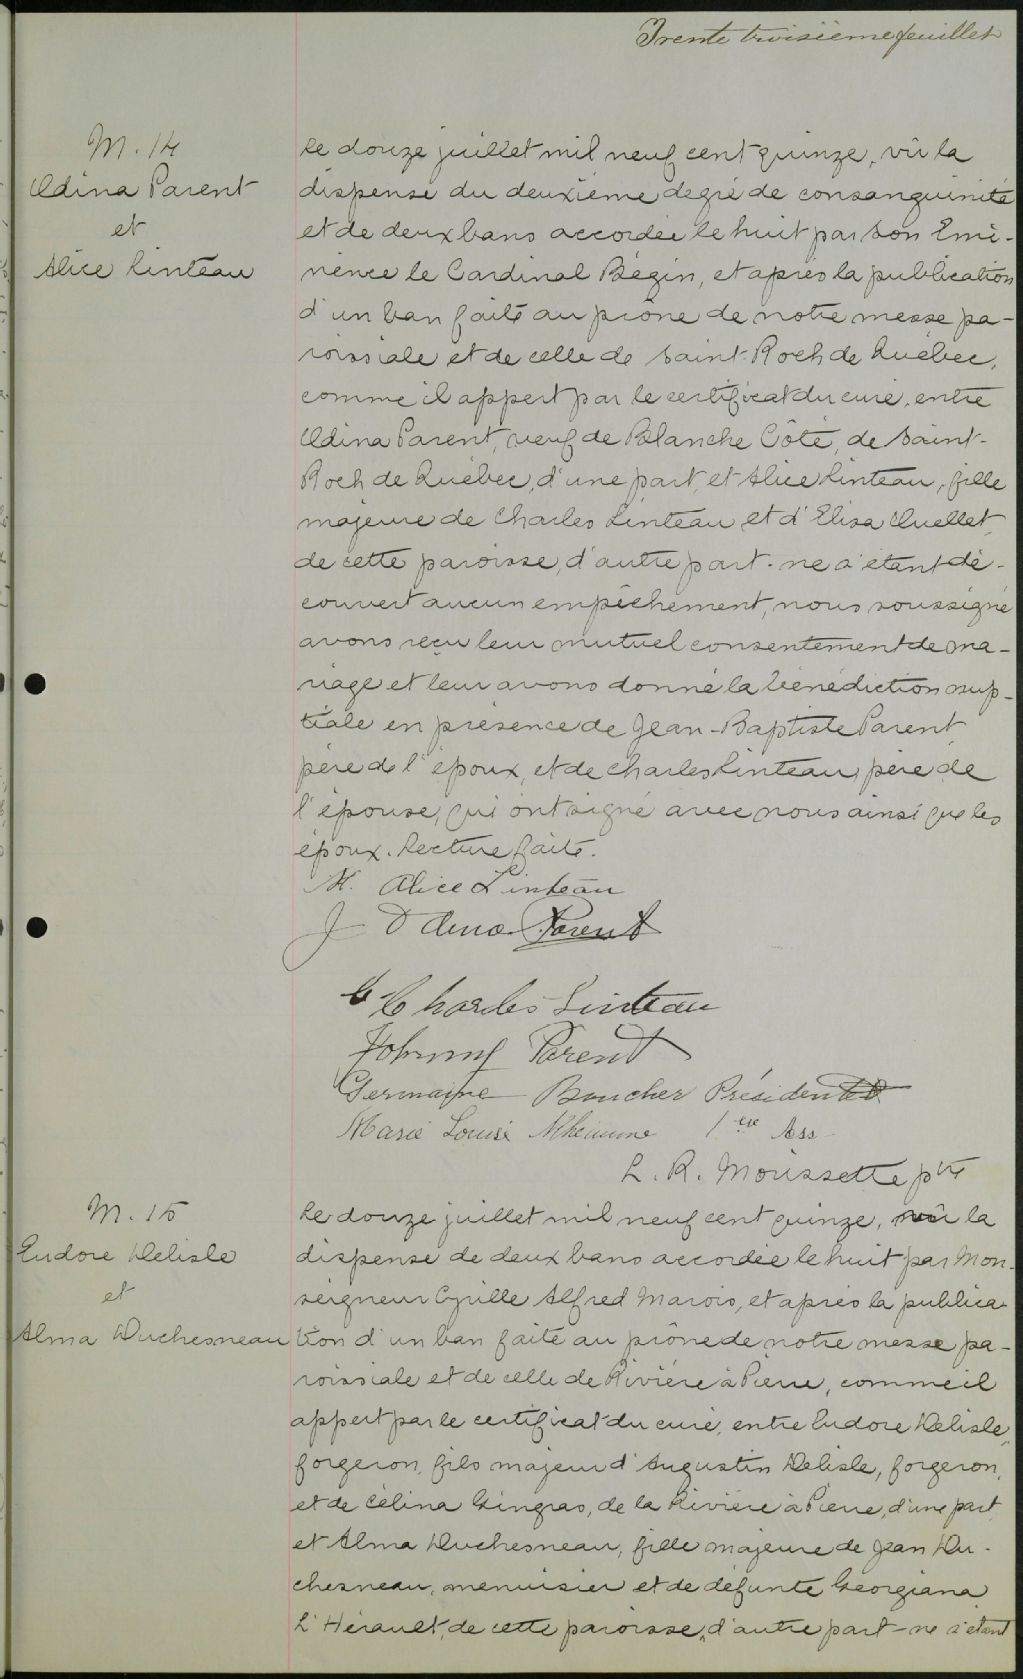 Trente troisième feuillet
M. 14
Odina Parent
et
Alice Linteau
Le douze juillet mil neuf cent quinze, vû la
dispense du deuxième degré de consanguinité
et de deux bans accordée le huit par Son Emi-
nence le Cardinal Bégin, et après la publication
d'un ban faite au prône de notre messe pa-
roissiale et de celle de Saint-Roch de Québec,
comme il appert par le certificat du curé, entre
Odina Parent, veuf de Blanche Côté, de Saint-
Roch de Québec, d'une part, et Alice Linteau, fille
majeure de Charles Linteau et d'Elisa Ouellet,
de cette paroisse, d'autre part - ne s'étant dé-
couvert aucun empêchement, nous soussigné
avons reçu leur mutuel consentement de ma-
riage et leur avons donné la bénédiction nup-
tiale en présence de Jean-Baptiste Parent
père de l'époux, et de Charles Linteau, père de
l'épouse, qui ont signé avec nous ainsi que les
époux. Lecture faite.
M. Alice Linteau
J Odina Parent
Charles Linteau
Johnny Parent
Germaine Boucher Présidente
Marie Louise 1ère Ass
L. R. Moissette ptre
M. 15
Eudore Delisle
et
Alma Duchesneau
Le douze juillet mil neuf cent quinze, vû la
dispense de deux bans accordée le huit par Mon-
seigneur Cyrille Alfred Marois, et après la publica-
tion d'un ban faite au prône de notre messe pa-
roissiale et de celle de Rivière à Pierre, comme il
appert par le certificat du curé, entre Eudore Delisle,
forgeron, fils majeur d'Augustin Delisle, forgeron,
et de Célina Gingras, de la Rivière à Pierre, d'une part,
et Alma Duchesneau, fille majeure de Jean Du-
chesneau, menuisier et de défunte Georgiana
L'Hérault, de cette paroisse, d'autre part - ne s'étant